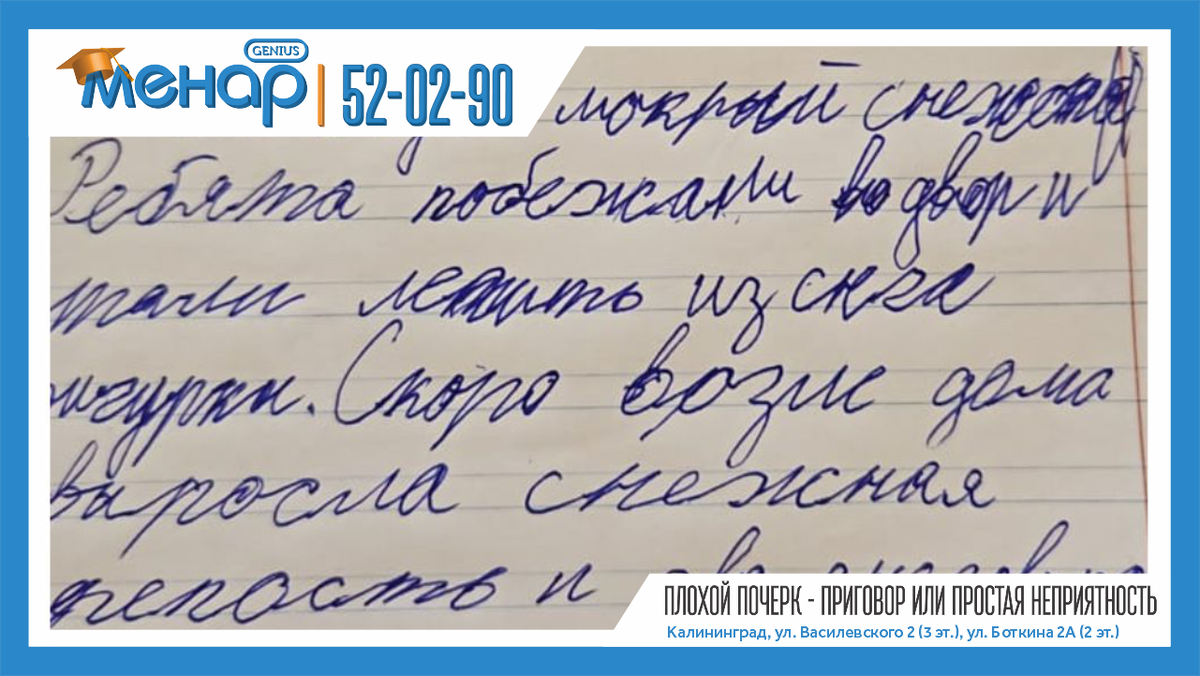 GENIUS
менар
52-02-90
мокрый
Ребята побежали во двор и
тали лепить из снга
игурки. Скоро возле дома
выросла снежная
репость и
ПЛОХОЙ ПОЧЕРК - ПРИГОВОР ИЛИ ПРОСТАЯ НЕПРИЯТНОСТЬ
Калининград, ул. Василевского 2 (3 эт.), ул. Боткина 2А (2 эт.)